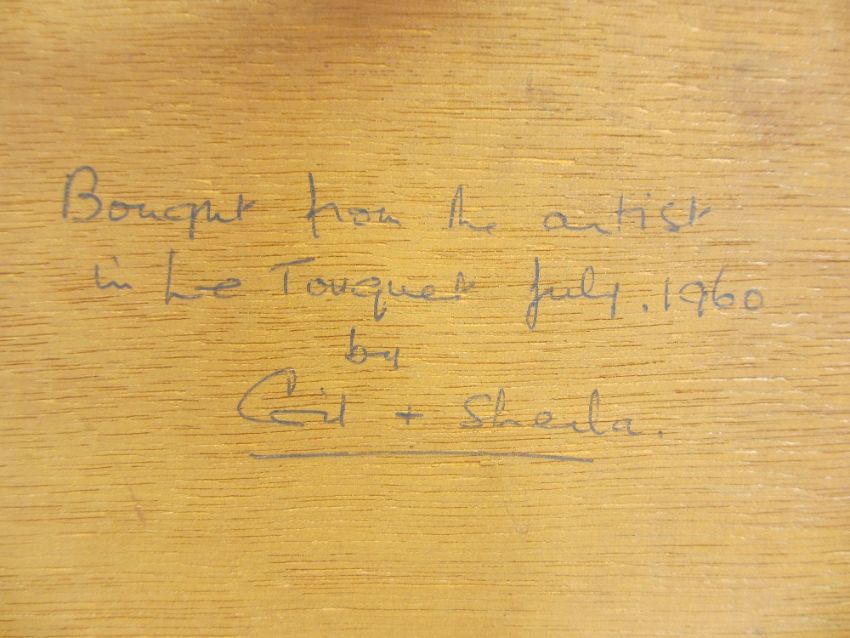 Bought from the artist
in Le Touquet July. 1960
by
+ Sheila.